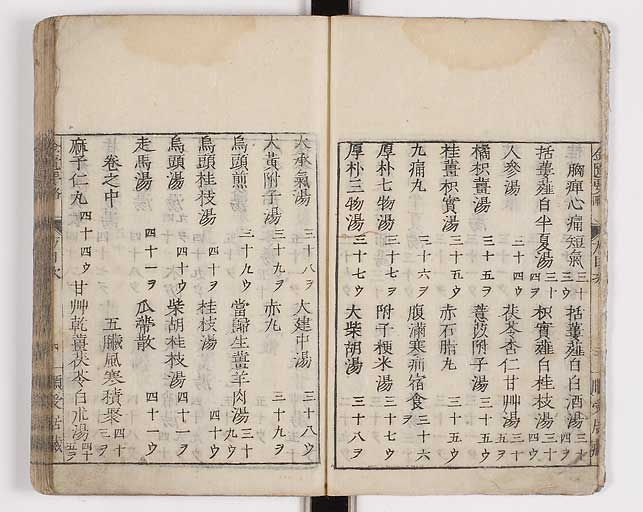 胸痺心痛短氣 三十ウ 括蔞薤白白酒湯 三十
括蔞薤白半夏湯 三十 枳實薤白桂枝湯 三十四ウ
人參湯 三十四ウ 茯苓杏仁甘艸湯 三十五ウ
橘枳薑湯 三十五ヲ 薏苡附子湯 三十五ヲ
桂薑枳實湯 三十五ウ 赤石脂丸 三十五ウ
九痛丸 三十六ヲ 腹滿寒疝宿食 三十六
厚朴七物湯 三十七ウ 附子粳米湯 三十七ウ
厚朴三物湯 三十七ウ 大柴胡湯 三十八ヲ
大承氣湯 三十八ヲ 大建中湯 三十八ウ
大黃附子湯 三十九ヲ 赤丸 三十九ヲ
烏頭煎湯 三十九ウ 當歸生薑羊肉湯 三十九ウ
烏頭桂枝湯 四十ヲ 桂枝湯 四十ウ
烏頭湯 四十ウ 柴胡桂枝湯 四十一ヲ
走馬湯 四十一ヲ 瓜蒂散 四十一ウ
卷之中 五臟風寒積聚 四十三ヲ
麻子仁丸 四十四ウ 甘艸乾薑茯苓白朮湯 四十五ヲ